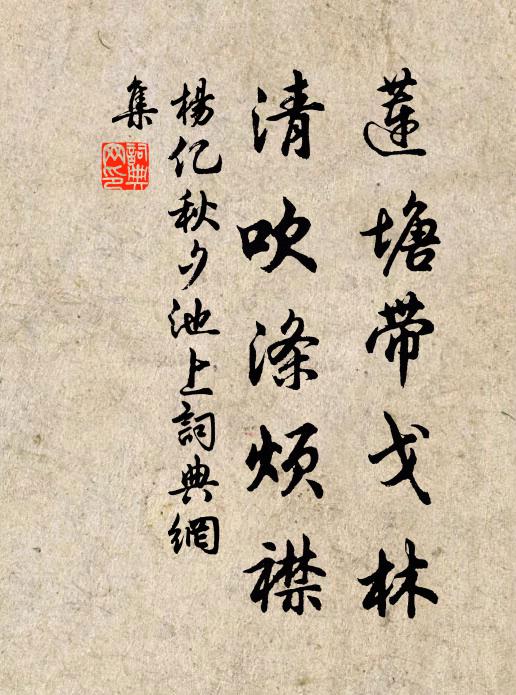 莲塘带戈林
清吹涤烦襟
杨亿秋夕池上詞典網
集
詞典
网印